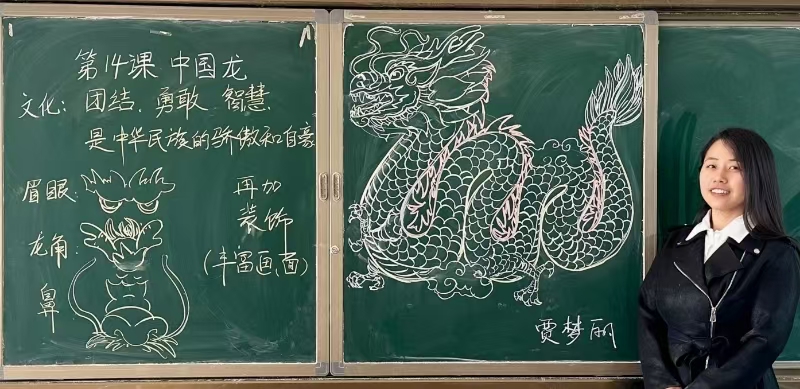 第14课 中国龙
文化: 团结、勇敢 智慧、
是中华民族的骄傲和自豪
眉眼:
龙角:
鼻
再加
装饰
(丰富画面)
贾梦丽